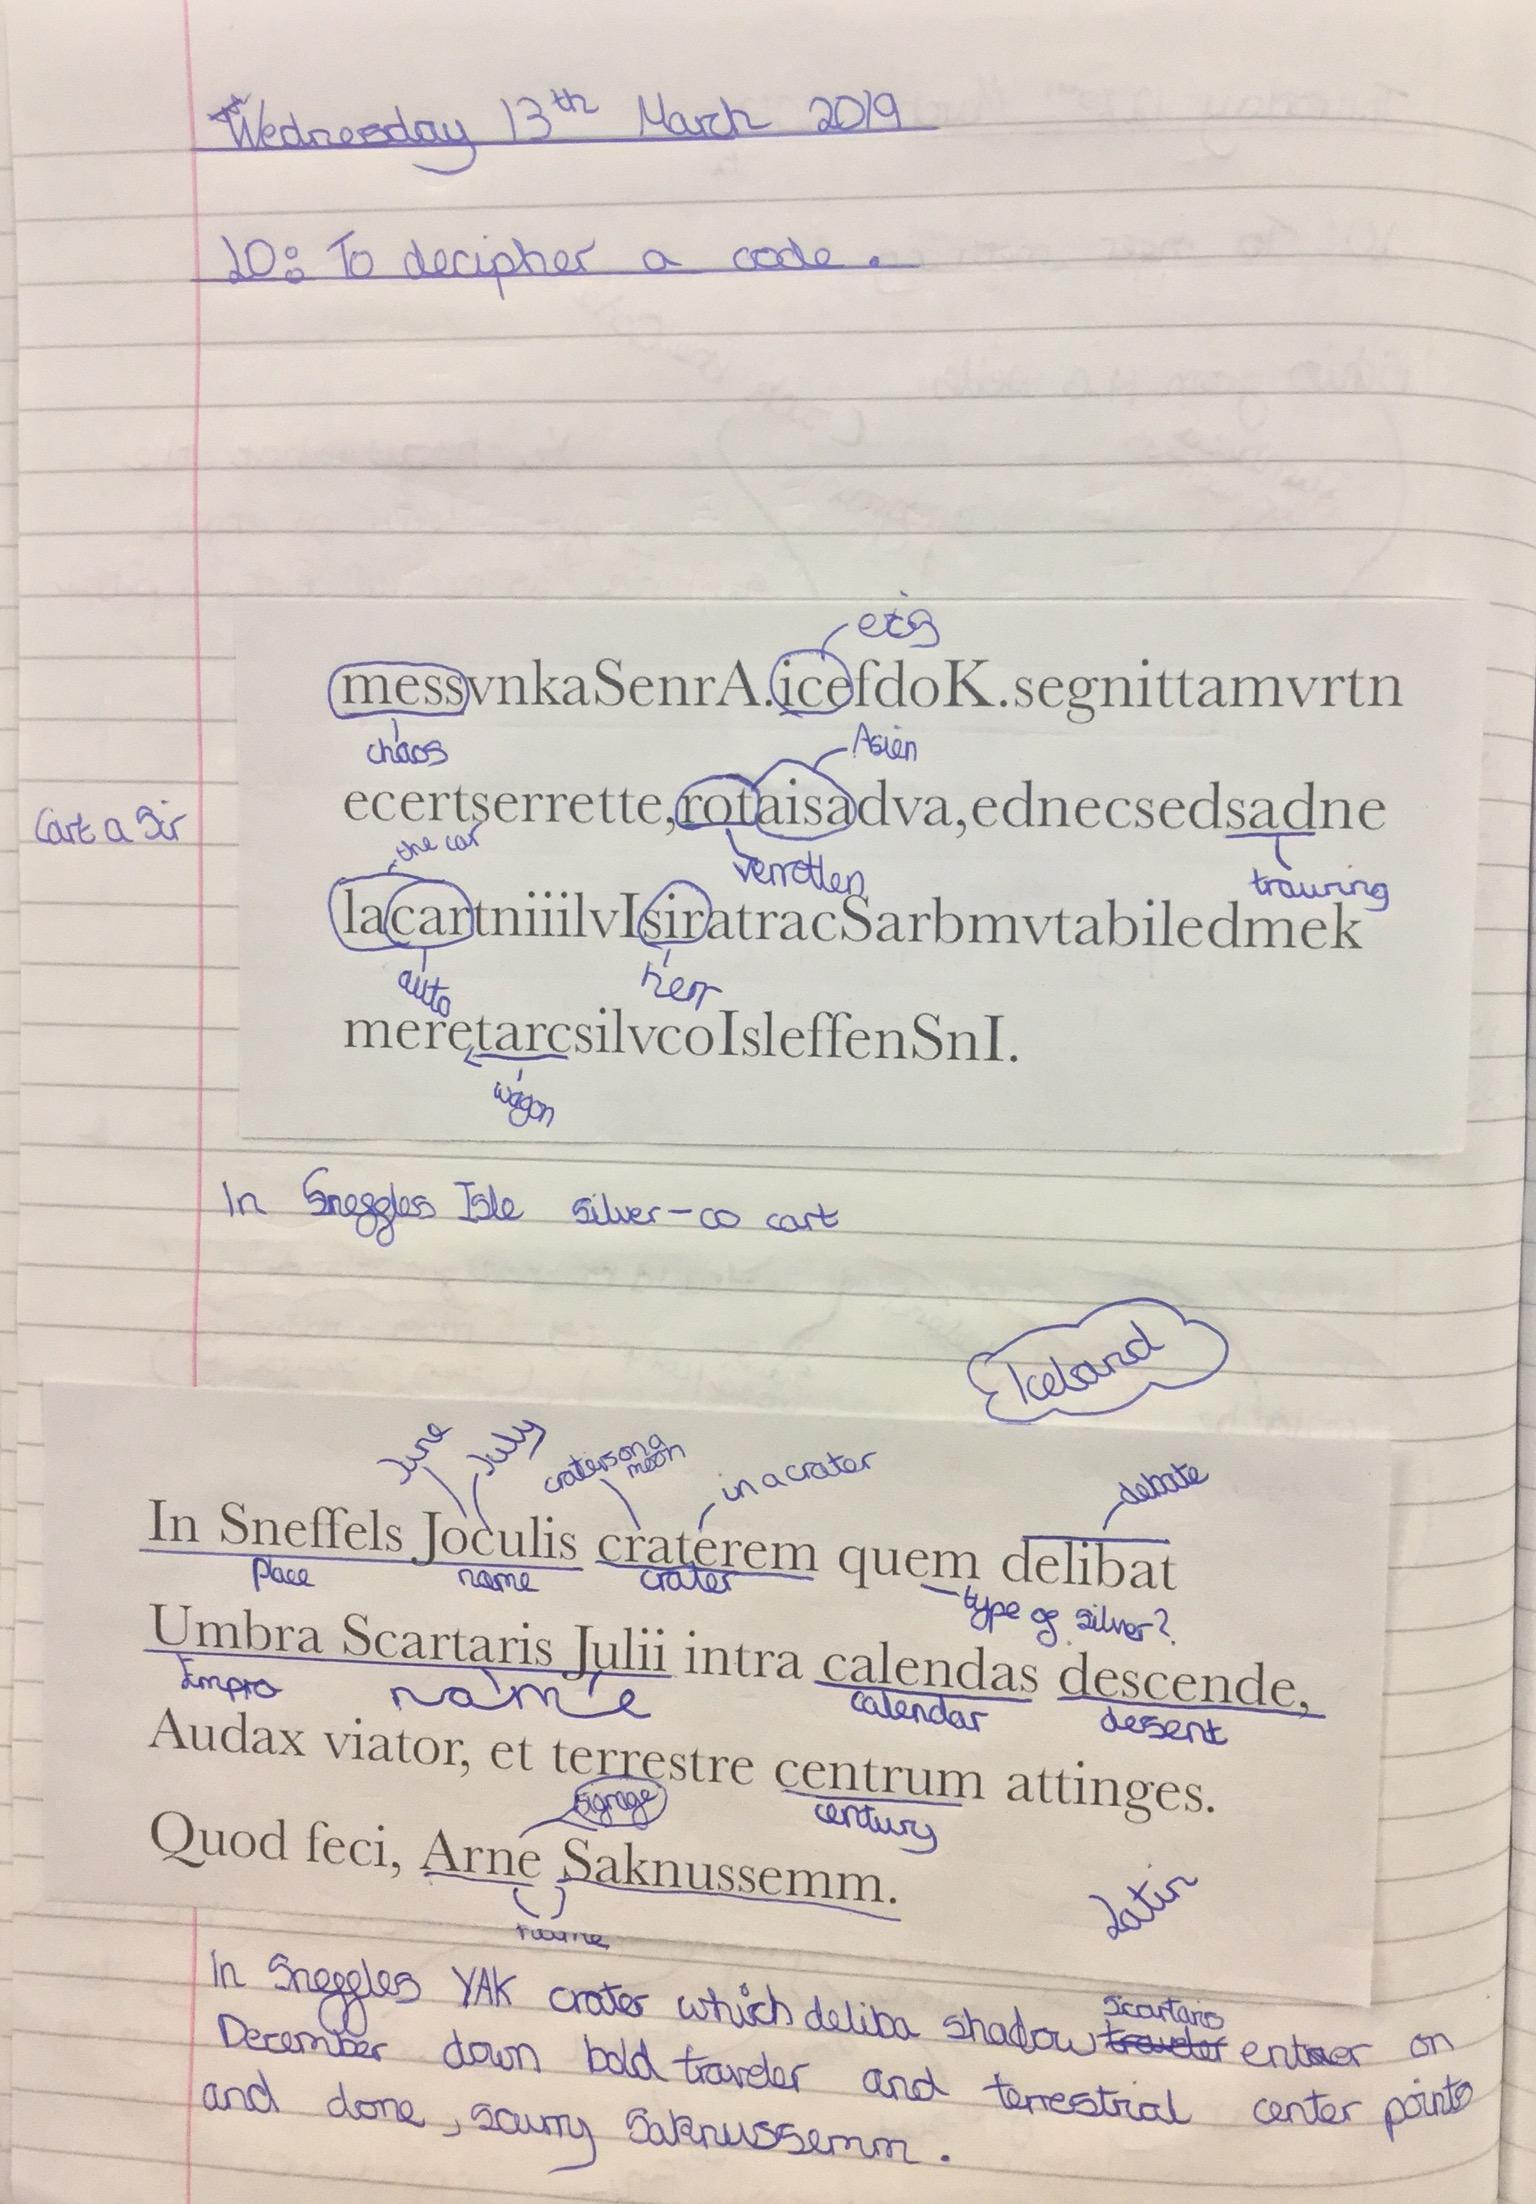 Wednesday 13th March 2019
LO: To decipher a code.
eis
messvnkaSenrA.icefdoK.segnittamvrtn
chaos
Asien
ecertserrette,rotaisadva,ednecsedsadne
Cart a Sir
the car
verrotten
trauring
lacartniiilvIsiratracSarbmvtabiledmek
auto
herr
meretarcsilvcoIsleffenSnI.
wagon
In Sneffles Isle silver-co cart
Iceland
June
July
craters on a moon
in a crater
debate
In Sneffels Joculis craterem quem delibat
place name crater
type of silver?
Umbra Scartaris Julii intra calendas descende,
Impro name calendar desent
Audax viator, et terrestre centrum attinges.
century
Quod feci, Arne Saknussemm.
name
Latin
In Sneffles YAK crater which deliba shadow traveler scartaris on
December down bold traveler and terrestrial center points
and done, Saknussemm.